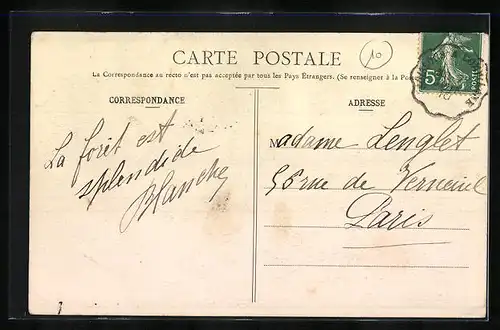 CARTE POSTALE
10
La Correspondance au recto n'est pas acceptée par tous les Pays Étrangers. (Se renseigner à la Poste
CORRESPONDANCE
ADRESSE
5c
POSTES
La forêt est
splendide
Blanche
Madame Lenglet
56 rue de Verneuil
Paris